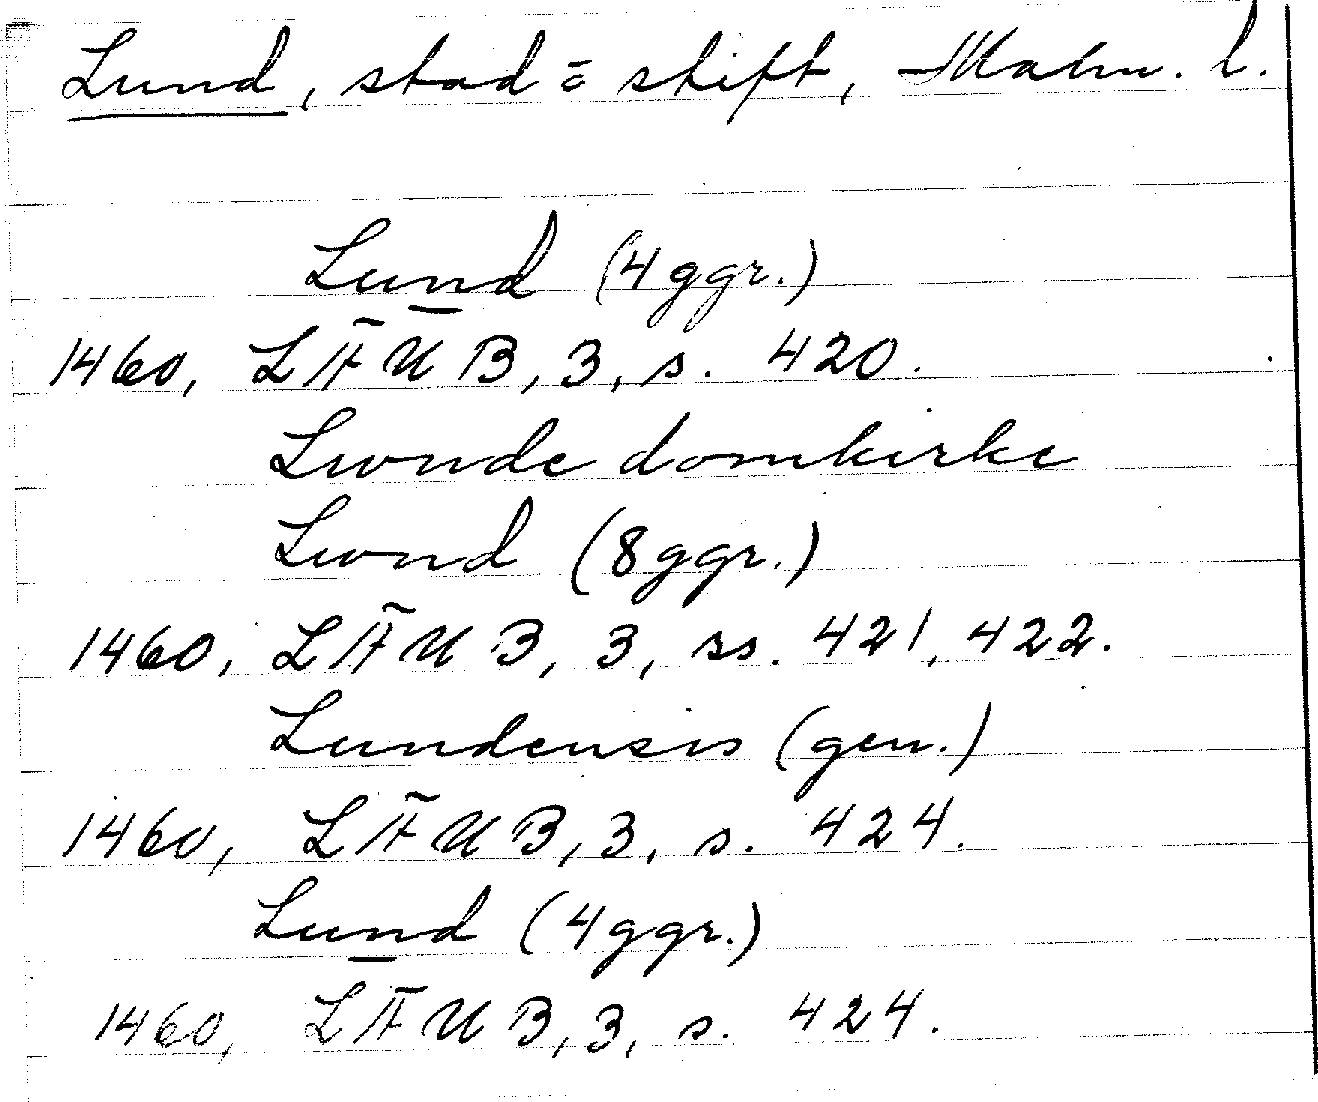 Lund, stad o stift, Malm. l.
Lund (4 ggr.)
1460, LÄUB, 3, s. 420.
Lwnde domkirke
Lwnd (8 ggr.)
1460, LÄUB, 3, ss. 421, 422.
Lundensis (gen.)
1460, LÄUB, 3, s. 424.
Lund (4 ggr.)
1460, LÄUB, 3, s. 424.